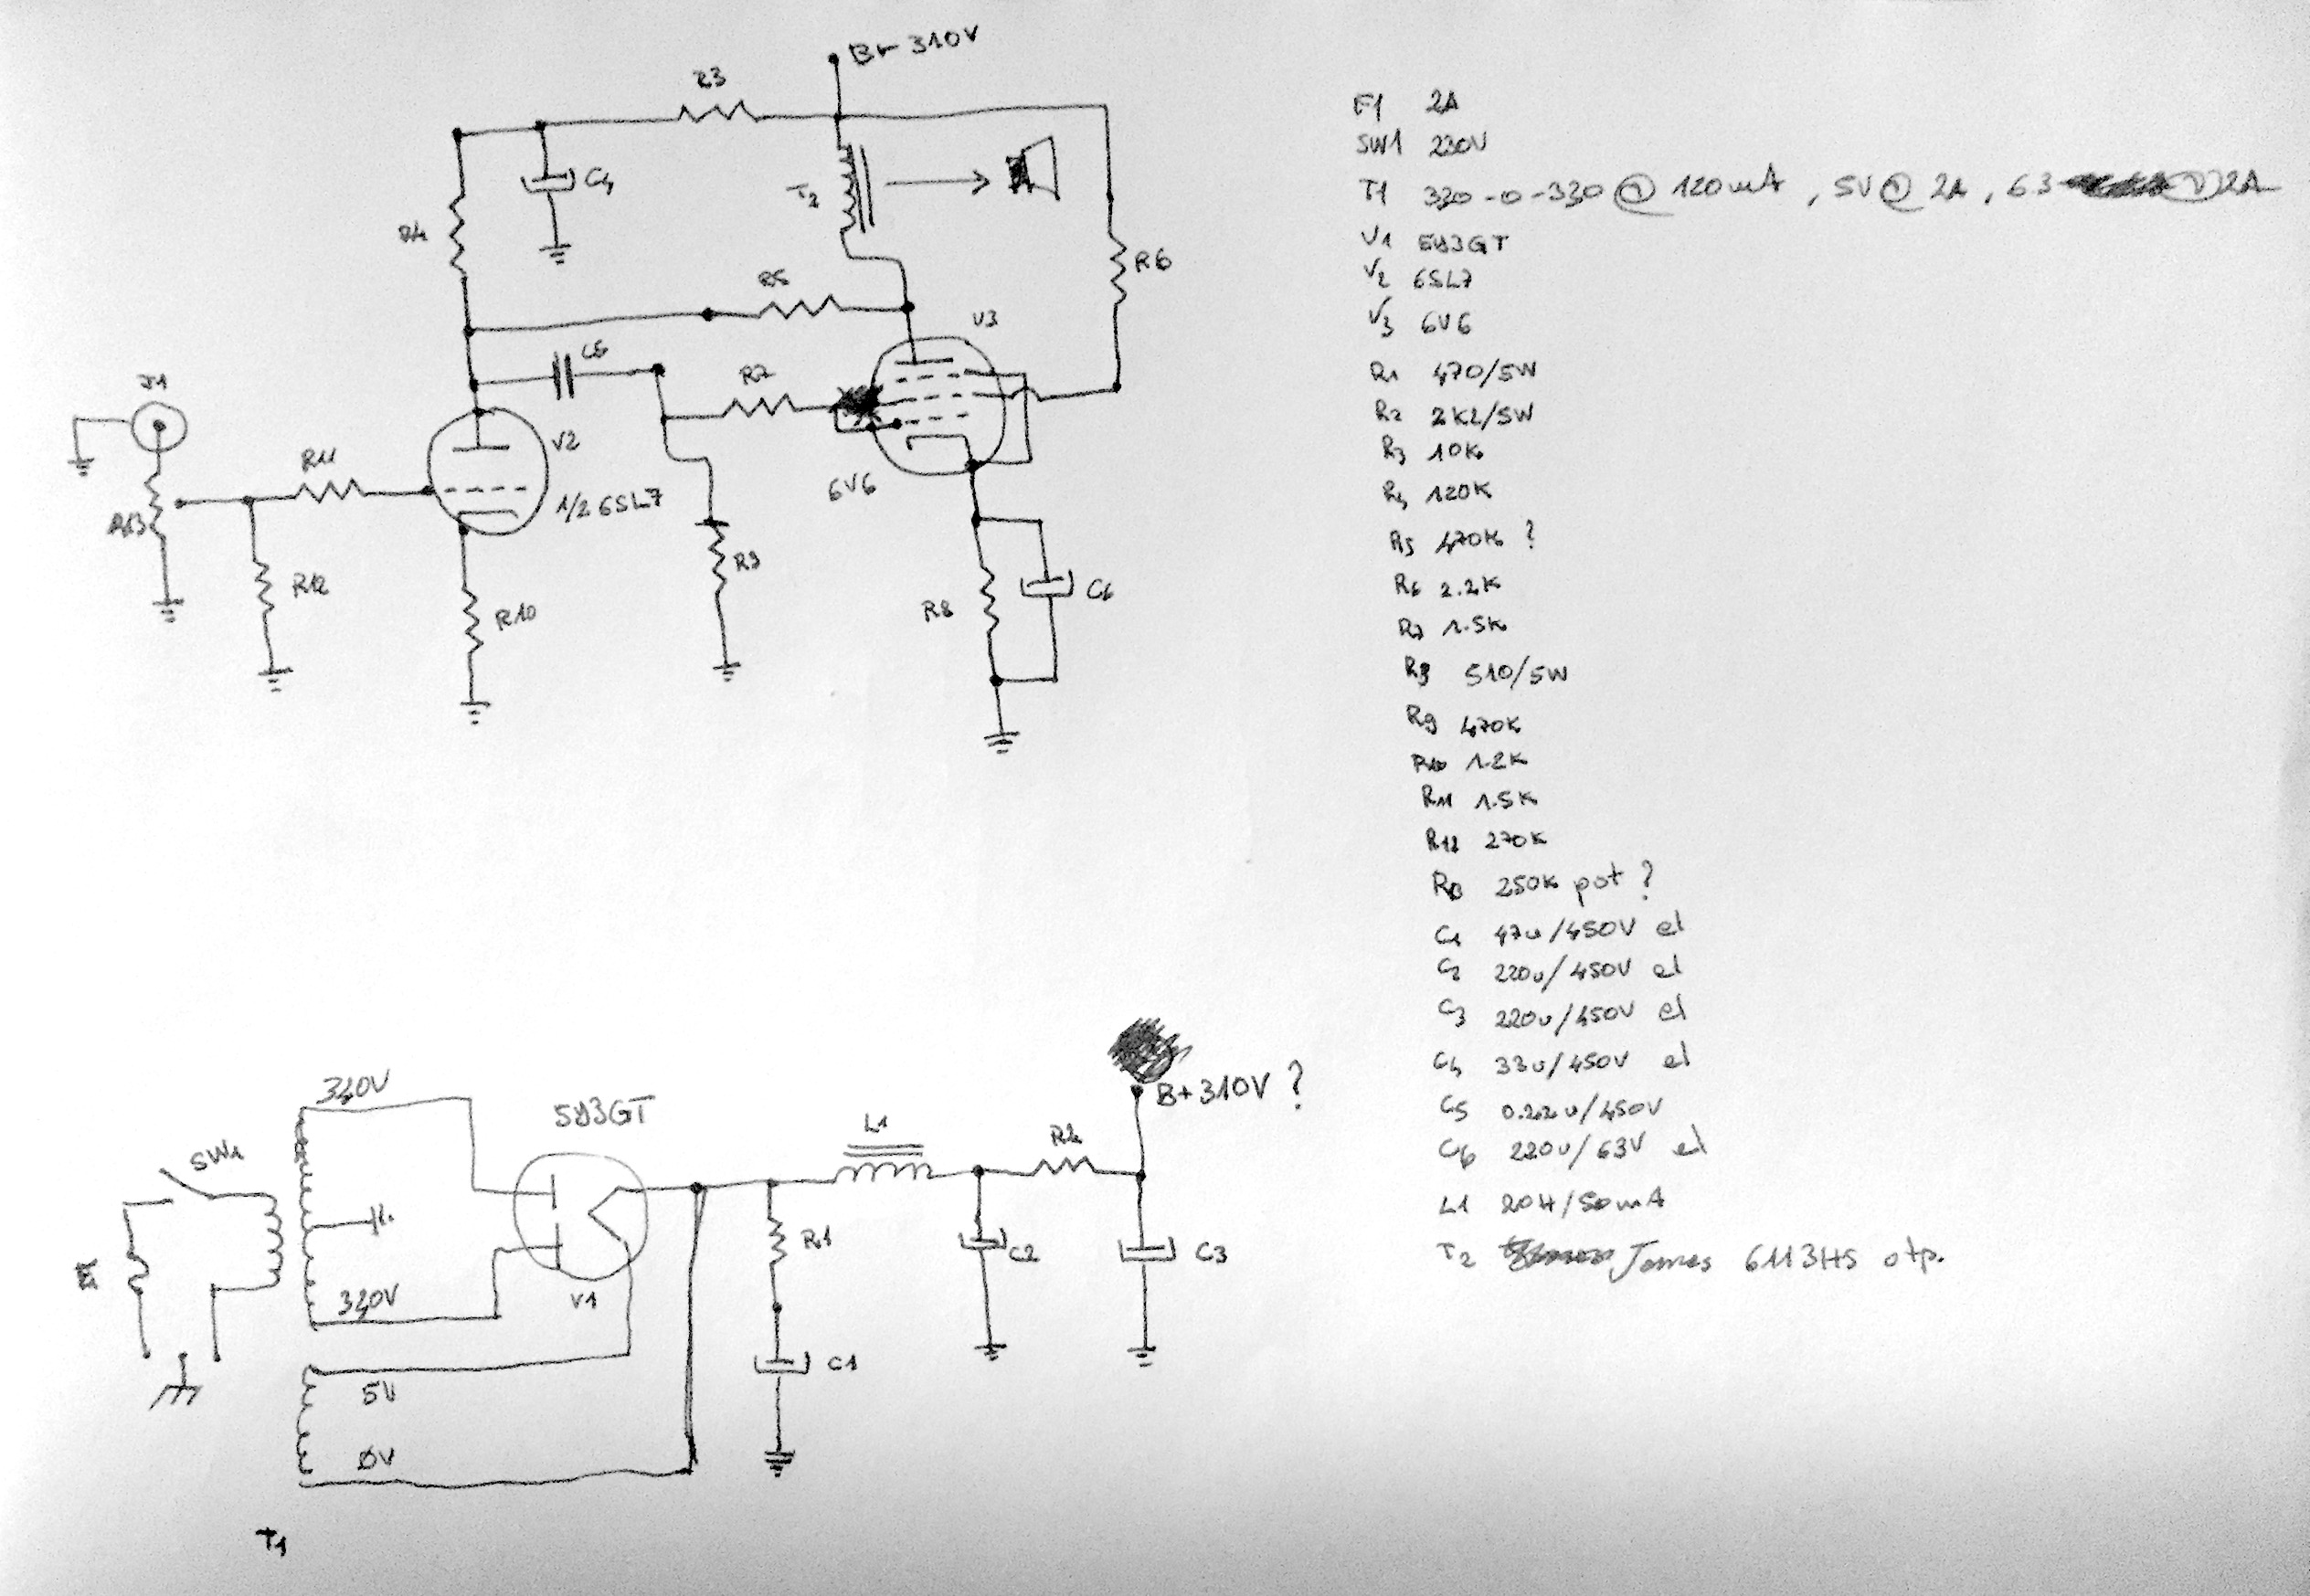 B+ 310V
R3
C4
T2
R4
R5
R6
V3
C5
J1
R7
V2
R11
1/2 6SL7
6V6
R13
R12
R10
R9
R8
C6
330V
5Y3GT
SW1
F1
330V
V1
5V
0V
T1
L1
R2
B+310V ?
R1
C2
C3
C1
F1 2A
SW1 230V
T1 330-0-330 @ 120mA, 5V @ 2A, 6.3 @ 2A
V1 5Y3GT
V2 6SL7
V3 6V6
R1 470/5W
R2 2K2/5W
R3 10K
R4 120K
R5 470K ?
R6 2.2K
R7 1.5K
R8 510/5W
R9 470K
R10 1.2K
R11 1.5K
R12 270K
R13 250K pot ?
C1 47u/450V el
C2 220u/450V el
C3 220u/450V el
C4 33u/450V el
C5 0.22u/450V
C6 220u/63V el
L1 20H/50mA
T2 James 6113HS otp.